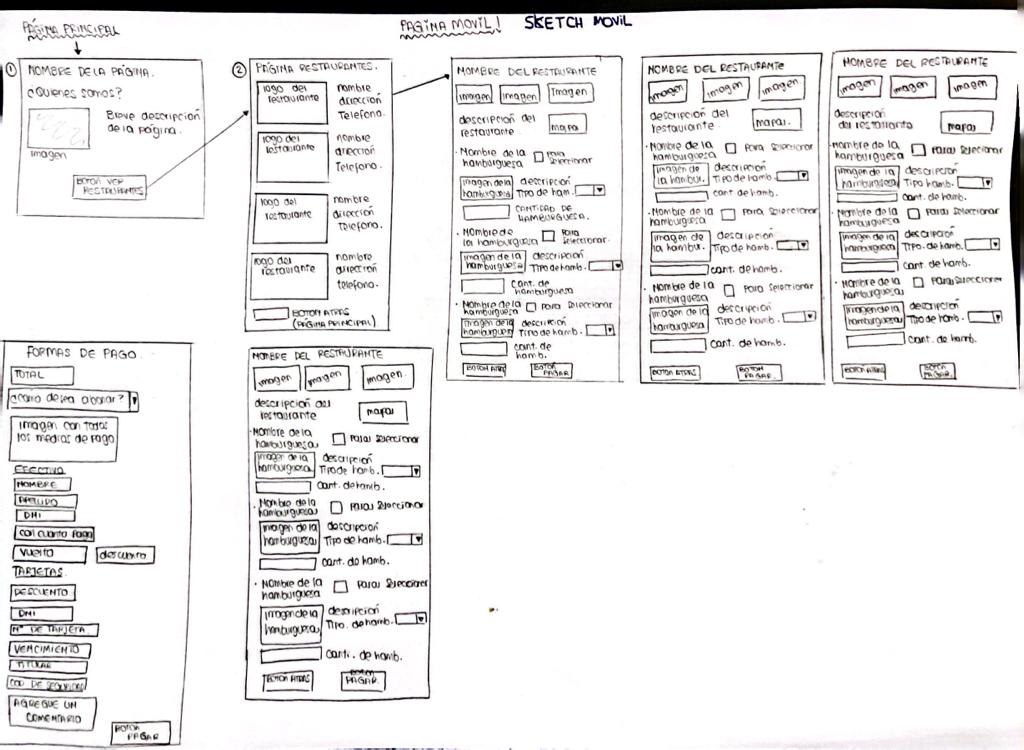 PÁGINA PRINCIPAL
PAGINA MOVIL!
SKETCH MOVIL
①
NOMBRE DE LA PÁGINA.
¿Quienes somos?
Breve descripción
de la página.
imagen
BOTON VER
RESTAURANTES
②
PÁGINA RESTAURANTES.
logo del
restaurante
nombre
dirección
Telefono.
logo del
restaurante
nombre
dirección
Telefono.
logo del
restaurante
nombre
dirección
Telefono.
logo del
restaurante
nombre
dirección
telefono.
BOTON ATRAS
(PÁGINA PRINCIPAL)
NOMBRE DEL RESTAURANTE
imagen
imagen
Imagen
descripción del
restaurante.
mapa
· Nombre de la
hamburguesa
Para
Seleccionar
imagen de la
hamburguesa
descripción
Tipo de ham.
CANTIDAD DE
HAMBURGUESA.
· Nombre de
la hamburguesa
Para
Seleccionar.
imagen de la
hamburguesa
descripción
Tipo de hamb.
Cant. de
hamburguesa
· Nombre de la
hamburguesa
Para Seleccionar
imagen de la
hamburguesa
descripción
Tipo de hamb.
cant. de
hamb.
BOTON ATRAS
BOTON
PAGAR.
NOMBRE DEL RESTAURANTE
imagen
imagen
imagen
descripción del
restaurante.
mapa.
· Nombre de la
hamburguesa
Para Seleccionar
imagen de
la hambur.
descripción
Tipo de hamb.
cant. de hamb.
· Nombre de la
hamburguesa
Para Seleccionar
imagen de
la hambur.
descripción
Tipo de hamb.
cant. de hamb.
· Nombre de la
hamburguesa
Para Seleccionar
imagen de la
hamburguesa
descripción
Tipo de hamb.
Cant. de hamb.
BOTON ATRAS
BOTON
PAGAR.
NOMBRE DEL RESTAURANTE
imagen
imagen
imagen
descripción
del restaurante
mapa
· Nombre de la
hamburguesa
Para Selecionar
imagen de la
hamburguesa
descripción
Tipo hamb.
Cant. de hamb.
· Nombre de la
hamburguesa
Para Seleccionar
imagen de la
hamburguesa
descripción
Tipo de hamb.
Cant. de hamb.
· Nombre de la
hamburguesa
Para Seleccioner
imagen de la
hamburguesa
descripción
Tipo de hamb.
Cant. de hamb.
BOTON ATRAS
BOTON
PAGAR
FORMAS DE PAGO.
TOTAL
¿Como desea abonar?
imagen con todos
los medios de pago
EFECTIVO
NOMBRE
APELLIDO
DNI
Con cuanto Paga
Vuelto
descuento
TARJETAS.
DESCUENTO
DNI
N° DE TARJETA
VENCIMIENTO
TITULAR
COD DE SEGURIDAD
AGREGUE UN
COMENTARIO
BOTON
PAGAR
NOMBRE DEL RESTAURANTE
imagen
imagen
imagen.
descripción del
restaurante
mapa
· Nombre de la
hamburguesa
Para Seleccionar
imagen de la
hamburguesa
descripción
Tipo de hamb.
Cant. de hamb.
· Nombre de la
hamburguesa
Para Seleccionar
imagen de la
hamburguesa
descripción
Tipo de hamb.
cant. de hamb.
· Nombre de la
hamburguesa
Para Seleccioner
imagen de la
hamburguesa
descripción
Tipo. de hamb.
Cant. de hamb.
BOTON ATRAS
BOTON
PAGAR.